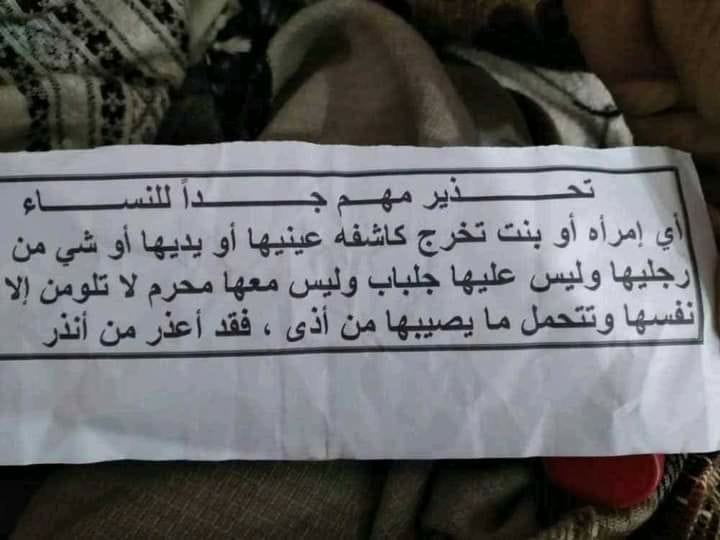 تحذير مهم جداً للنساء
أي إمرأه أو بنت تخرج كاشفه عينيها أو يديها أو شي من
رجليها وليس عليها جلباب وليس معها محرم لا تلومن إلا
نفسها وتتحمل ما يصيبها من أذى ، فقد أعذر من أنذر